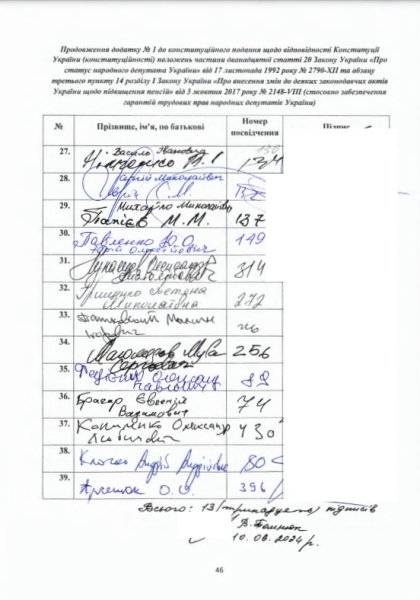 Продовження додатку № 1 до конституційного подання щодо відповідності Конституції
України (конституційності) положень частини дванадцятої статті 20 Закону України «Про
статус народного депутата України» від 17 листопада 1992 року № 2790-XII та абзацу
третього пункту 14 розділу I Закону України «Про внесення змін до деяких законодавчих актів
України щодо підвищення пенсій» від 3 жовтня 2017 року № 2148-VIII (стосовно забезпечення
гарантій трудових прав народних депутатів України)
№ Прізвище, ім'я, по батькові Номер посвідчення Підпис
27. Василь Іванович
134
28. Сергій Миколайович
29. Михайло Миколайович
Папієв М.М. 137
30. Павленко Ю.О. 149
Юрій Олексійович
31. Лукашев Олександр
Анатолійович 314
32. Грищенко Тетяна
Миколаївна 272
33.
Ігорович
34. Магомедов Муса
Сергоєвич 256
35. Олександр
Павлович 82
36. Брагар Євгеній
Вадимович 74
37. Качний Олександр
430
38. Клочко Андрій Андрійович 80
39. О. О. 396
Всього: 13 (тринадцять) підписів
10.08.2024р.
46